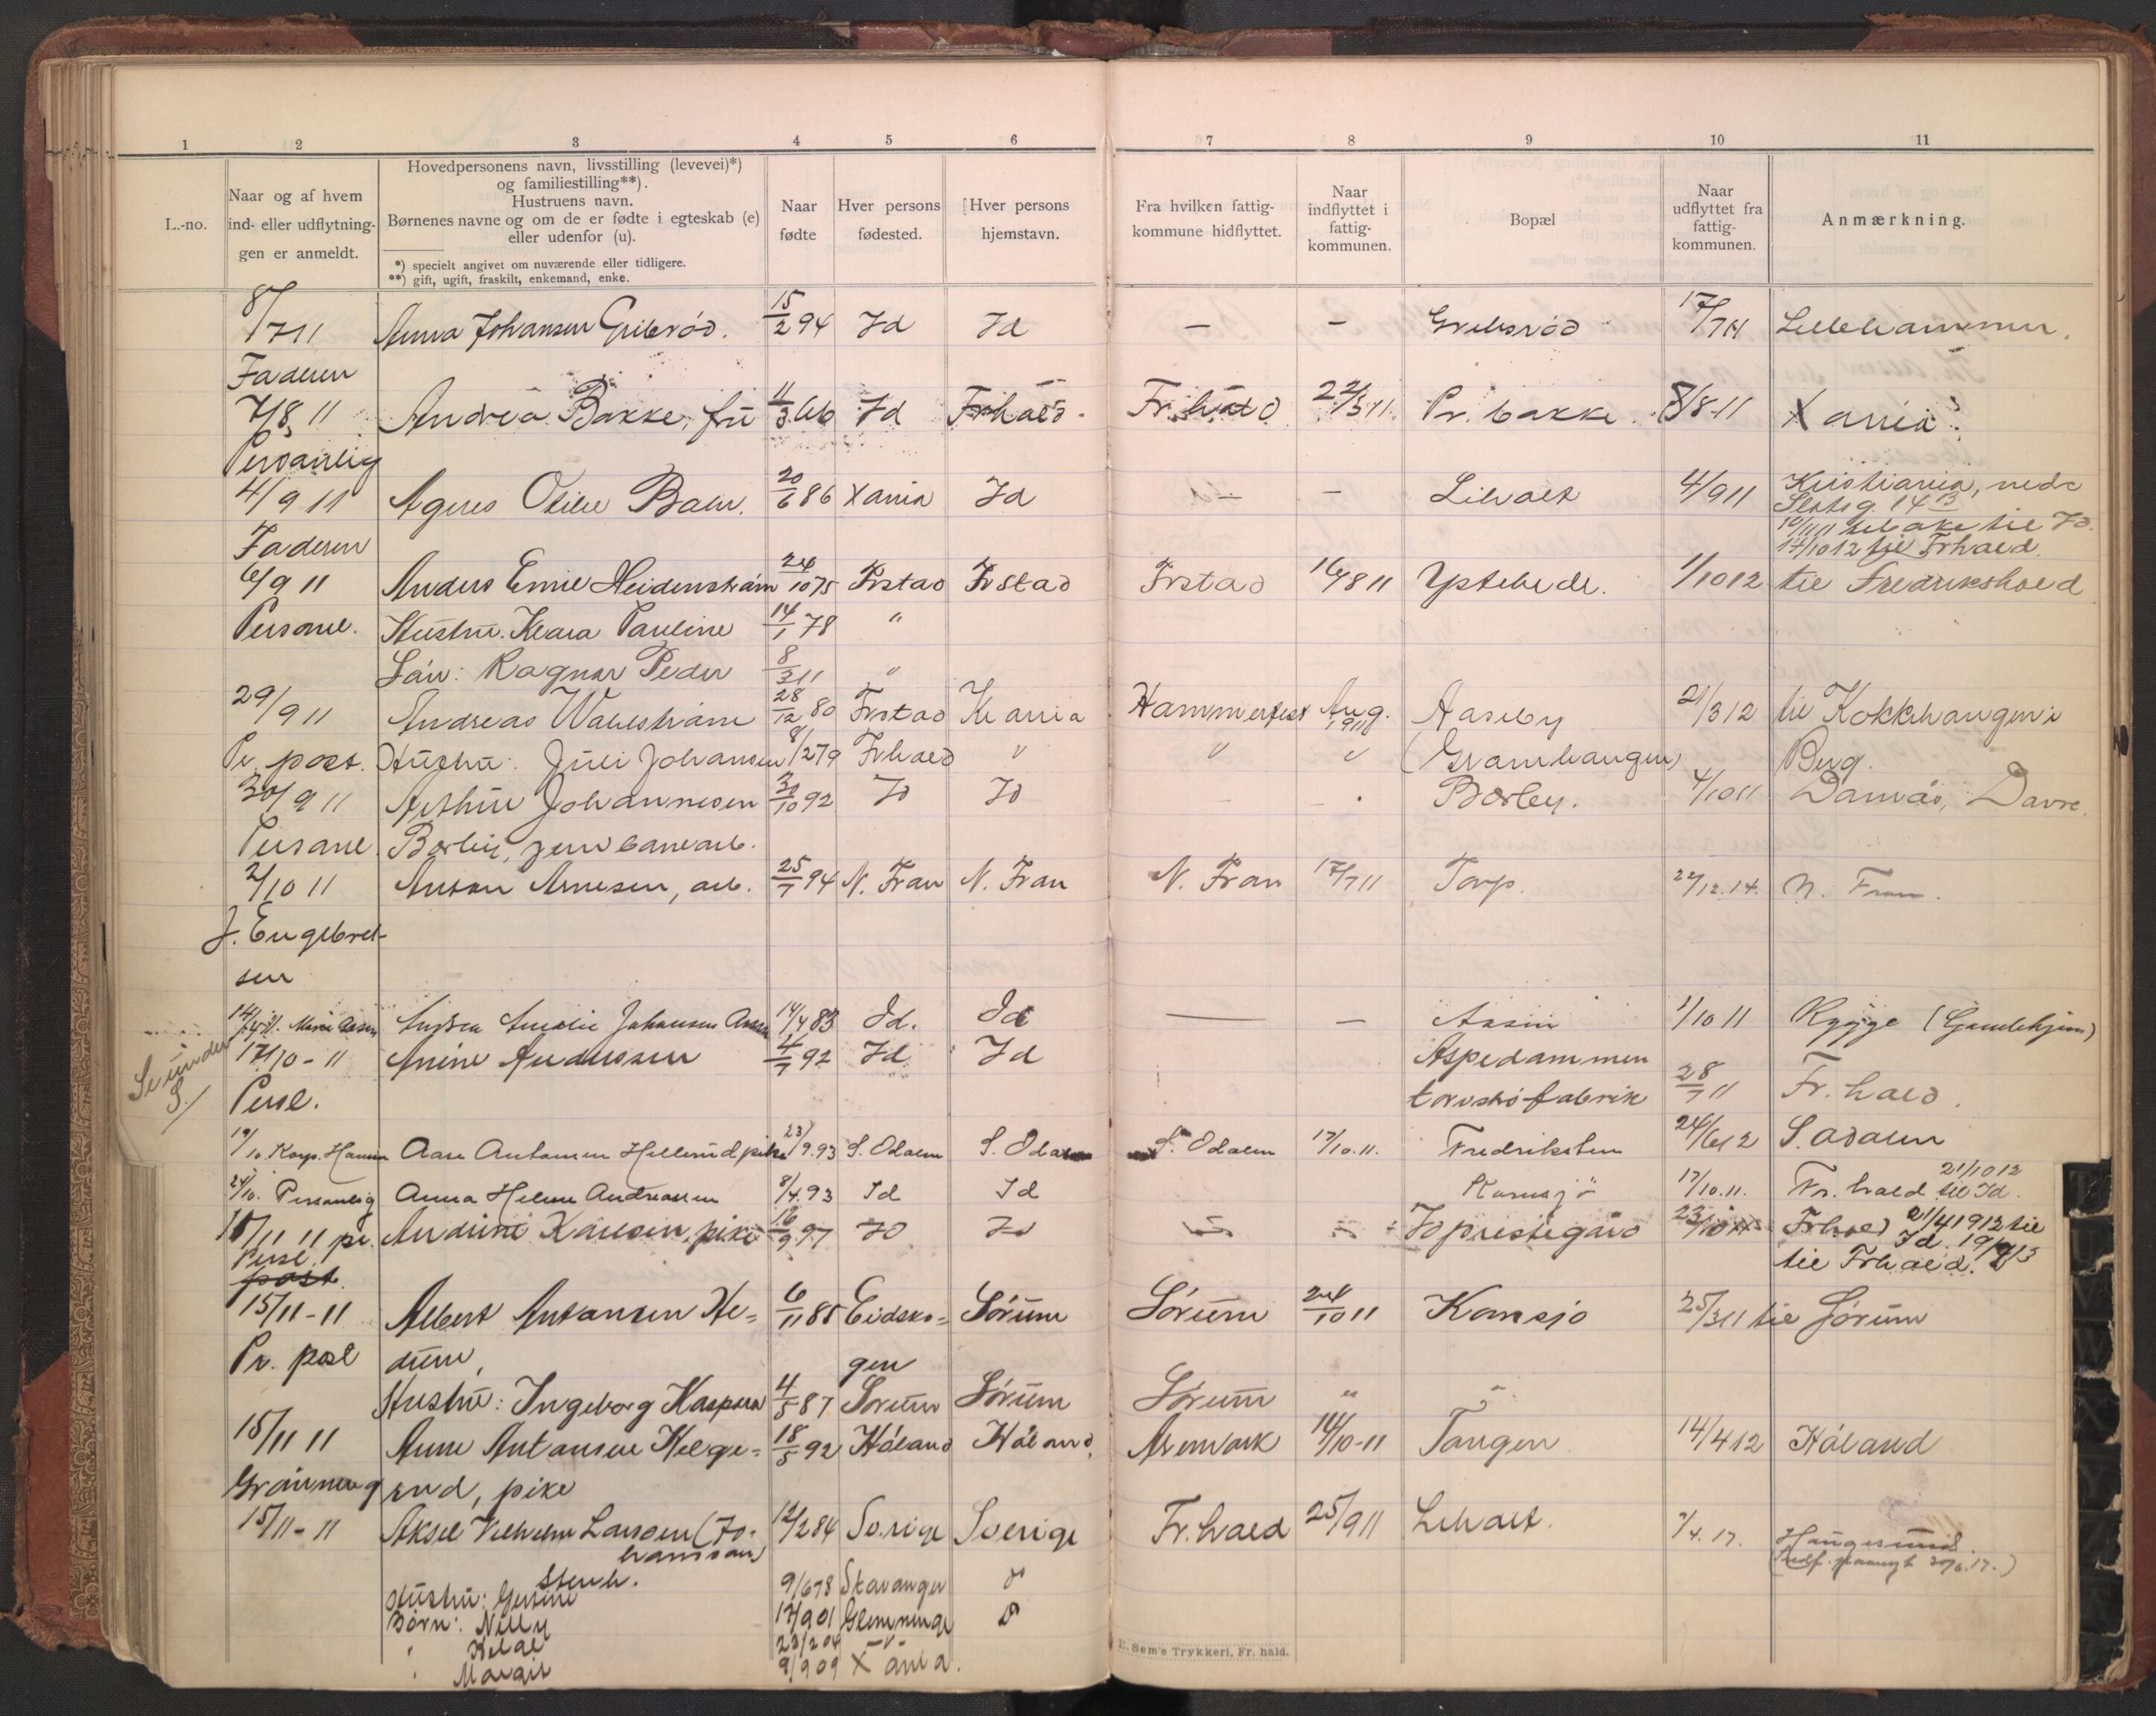 1 2 3 4 5 6 7 8 9 10 11
L.-no.
Naar og af hvem
ind- eller udflytnin-
gen er anmeldt.
Hovedpersonens navn, livsstilling (levevei)*)
og familiestilling**).
Hustruens navn.
Børnenes navne og om de er fødte i egteskab (e)
eller udenfor (u).
*) specielt angivet om nuværende eller tidligere.
**) gift, ugift, fraskilt, enkemand, enke.
Naar
fødte
Hver persons
fødested.
Hver persons
hjemstavn.
Fra hvilken fattig-
kommune hidflyttet.
Naar
indflyttet i
fattig-
kommunen.
Bopæl
Naar
udflyttet fra
fattig-
kommunen.
Anmærkning.
8/7 11 Anna Johansen Gribsrød. 15/2 94 Id Id — — Gribsrød 17/7 11 Lillehammer.
Faderen
7/8 11 Andrea Bakke, fru 11/3 66 Id Frhald. Fr.hald 22/3 11. Pr. bakke. 8/8 11 Xania
Personlig
4/9 11 Agnes Otilie 20/6 86 Xania Id — — Liholt 4/9 11 Kristiania, nedr
Slotsg. 14 B
10/11 11 tilbake til Id.
Faderen 14/10 12 til Frhald.
6/9 11 Anders Emil Heidenstrøm 24/10 75 Frstad Frstad Frstad 16/8 11 Ystehede. 1/10 12 til Fredrikshald
Personl. Hustru. Klara Pauline 14/1 78 "
Søn: Ragnar Peder 8/3 11 "
29/9 11 Andreas Wahlstrøm 28/12 80 Frstad Kr ania Hammerfest Aug. 1911 Aaseby 21/3 12 til Kokkhaugen i
Pr. post. Hustru: Juli Johansen 8/2 79 Frhald " " " (Gramhaugen) Berg.
30/9 11 Arthur Johannesen 30/10 92 Id Id Børby. 4/10 11 Domås, Dovre.
Personl. jernbanearb.
2/10 11 Anton Arnesen, arb. 25/1 94 N. Fron N. Fron N. Fron 17/7 11 Torp. 22/12.14. N. Fron.
J. Engebret-
sen
Amalie Johansen 14/4 83 Id. Id — — 1/10 11 Rygge (Gamlehjem)
Se under
S/
17/10 - 11 Anine Andersen 4/1 92 Id Id Aspedammen
Persl. torvstrøfabrik 28/7 11 Fr. hald.
19/10. Korp. Hansen Aase Antonsen Hellerud pike 23/9.93 S. Odalen S. Odalen S. Odalen 17/10.11. Fredriksten 24/6 12 S. Odalen
24/10. Personlig Anna Helene Andreassen 8/4.93 Id Id Kornsjø 17/10.11. Fr. hald 21/10 12 til Id.
10/11 11 pr. Andrine Karlsen, pike 16/9 97 Id Id Id prestegård 23/10 11 Frhald 21/4 1912 til
Persl. Id. 19/7 13
post. til Frhald.
15/11 - 11 Albert Antonsen He- 6/11 88 Eidsko- Sørum Sørum 24/10 11 Kornsjø 25/3 11 til Sørum
Pr. post dum, gen
Hustru: Ingeborg Kaspara 4/5 87 Sørum Sørum Sørum " "
15/11 11 Anne Antonsen Helge- 18/5 92 Høland Høland. Aremark 14/10-11 Tangen 14/4 12 Høland
rud, pike
15/11 - 11 Aksel Vilhelm Larsen (Jo- 12/2 84 Sverige Sverige Fr. hald 25/9 11 Liholt. 7/4.17. Haugesund.
hansson)
Stenh.
Hustru: Gustine 9/6 78 Stavanger
Børn: Nelly 17/9 01 Glemminge
23/2 04 —"—
Margit 9/9 09 X ania.
E. Sem's Trykkeri, Fr. hald.